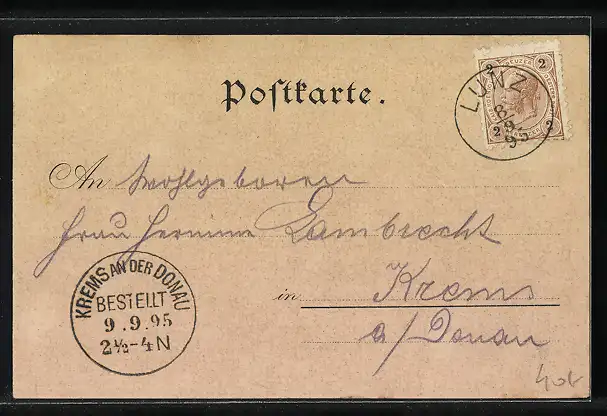 Postkarte.
2 KREUZER 2
2 2
LUNZ
8/9
95
An Wohlgeboren
Frau Hermine Lambrecht
in Krems
a/Donau
KREMS AN DER DONAU
BESTELLT
9.9.95
2½-4N